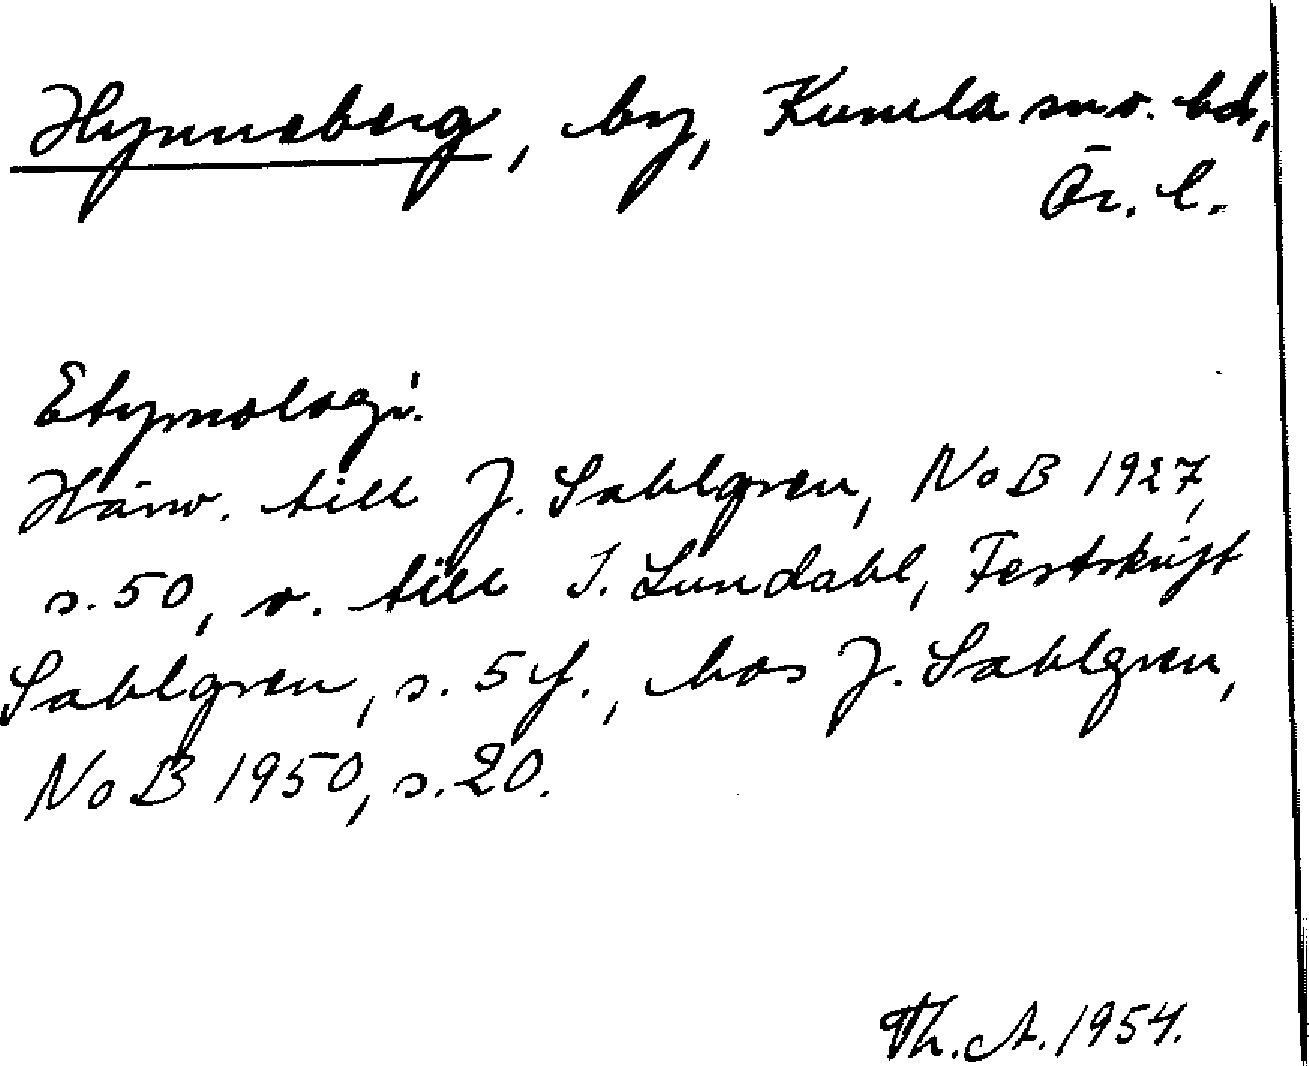 Hynneberg, by, Kumla sn o. hd,
Ör. l.
Etymologi:
Hänv. till J. Sahlgren, NoB 1927,
s. 50, o. till I. Lundahl, Festskrift
Sahlgren, s. 5 f., hos J. Sahlgren,
NoB 1950, s. 20.
Th. A. 1954.